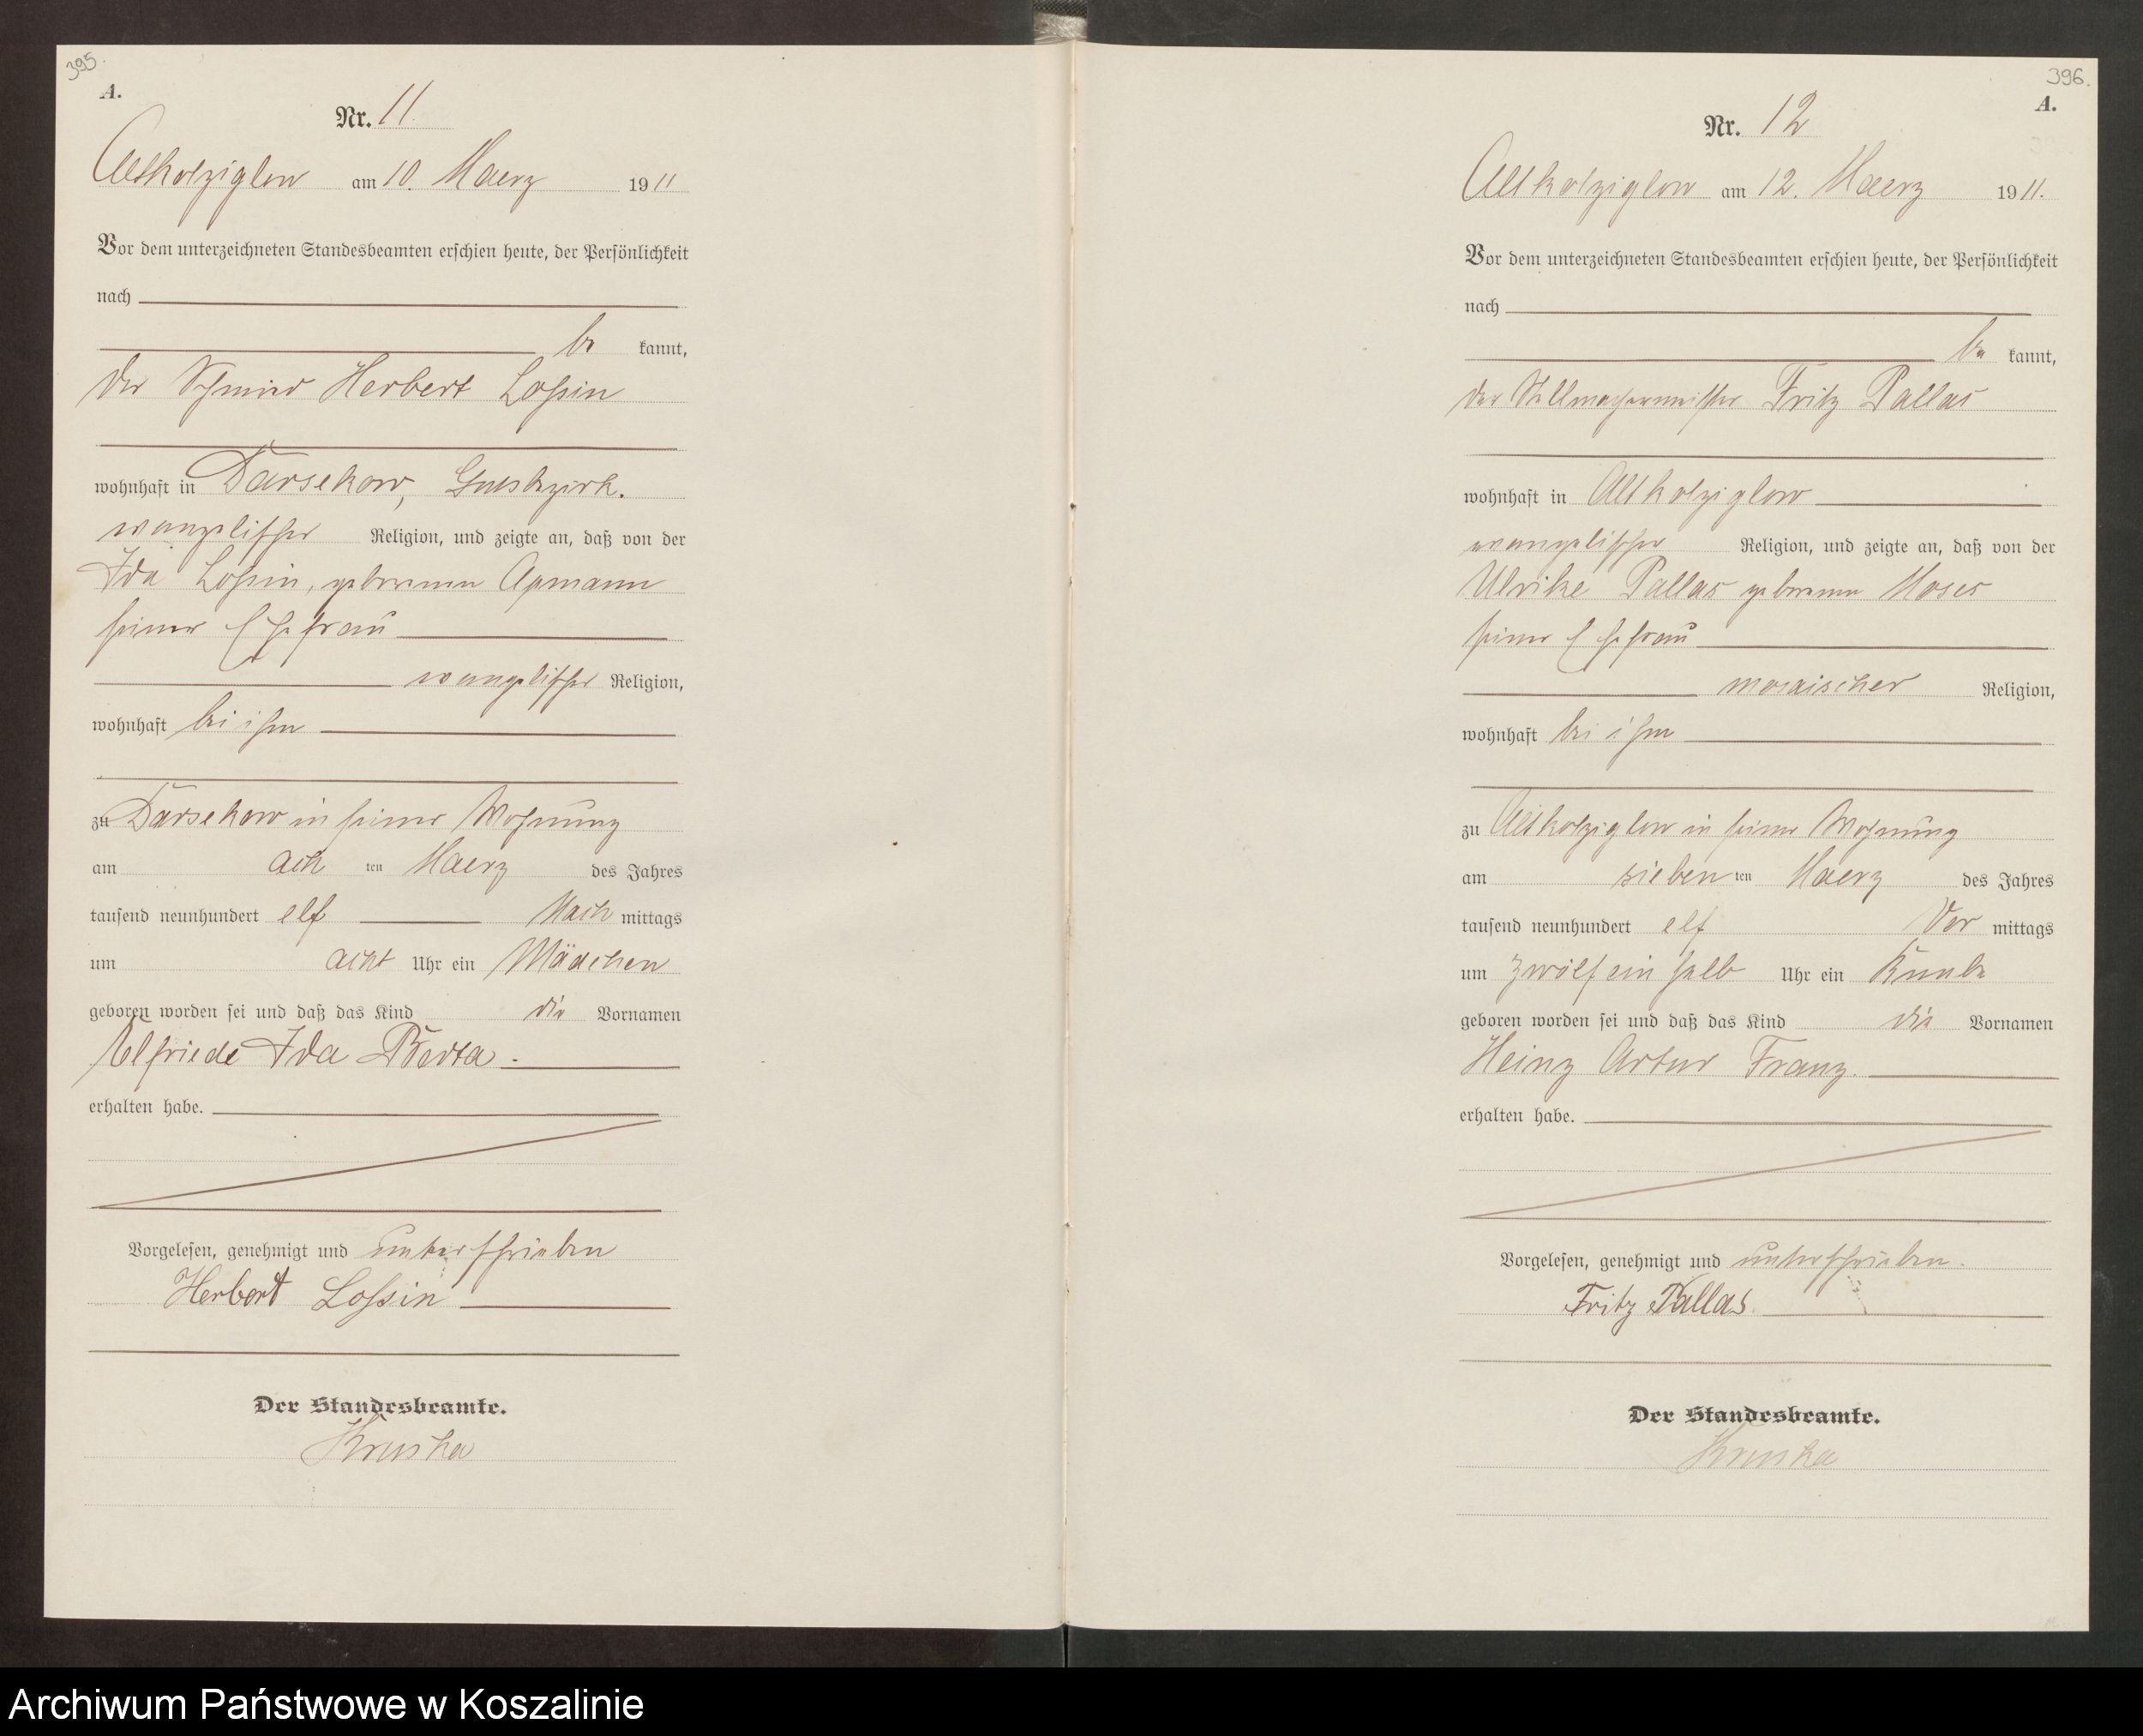 395.
A.
Nr. 11.
Altkolziglow am 10. Maerz 1911
Vor dem unterzeichneten Standesbeamten erschien heute, der Persönlichkeit
nach
be kannt,
der Schmied Herbert Loßin
wohnhaft in Darsekow, Gutsbezirk.
evangelischer Religion, und zeigte an, daß von der
Ida Loßin, geborenen
seiner Ehefrau
evangelischer Religion,
wohnhaft bei ihm
zu Darsekow in seiner Wohnung
am ach ten Maerz des Jahres
tausend neunhundert elf Nach mittags
um acht Uhr ein Mädchen
geboren worden sei und daß das Kind die Vornamen
Elfriede Ida Berta.
erhalten habe.
Vorgelesen, genehmigt und unterschrieben
Herbert Loßin
Der Standesbeamte.
Kruska
396.
A.
Nr. 12
Altkolziglow am 12. Maerz 1911.
Vor dem unterzeichneten Standesbeamten erschien heute, der Persönlichkeit
nach
be kannt,
der Stellmachermeister Fritz Pallas
wohnhaft in Altkolziglow
evangelischer Religion, und zeigte an, daß von der
Ulrike Pallas geborenen Moses
seiner Ehefrau
mosaischer Religion,
wohnhaft bei ihm
zu Altkolziglow in seiner Wohnung
am sieben ten Maerz des Jahres
tausend neunhundert elf Vor mittags
um zwölf ein halb Uhr ein Knabe
geboren worden sei und daß das Kind die Vornamen
Heinz Artur Franz.
erhalten habe.
Vorgelesen, genehmigt und unterschrieben.
Fritz Pallas
Der Standesbeamte.
Kruska
Archiwum Państwowe w Koszalinie